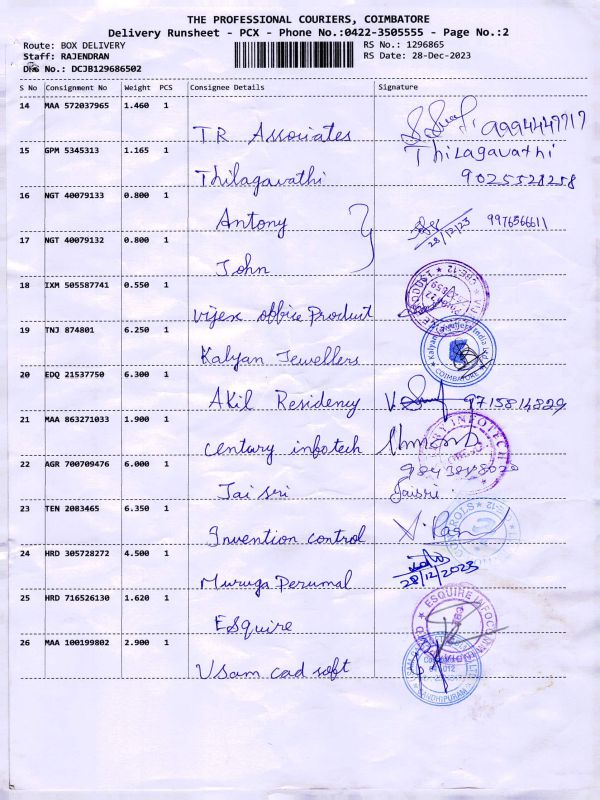 THE PROFESSIONAL COURIERS, COIMBATORE
Delivery Runsheet - PCX - Phone No.:0422-3505555 - Page No.:2
Route: BOX DELIVERY
RS No.: 1296865
Staff: RAJENDRAN
RS Date: 28-Dec-2023
DRS No.: DCJB129686502
S No Consignment No Weight PCS Consignee Details Signature
14 MAA 572037965 1.460 1
TR Associates 9994447717
15 GPM 5345313 1.165 1 Thilagavathi
Thilagavathi 9025528258
16 NGT 40079133 0.800 1
Antony 28/12/23 9976566611
17 NGT 40079132 0.800 1
John
18 IXM 505587741 0.550 1
vijex office Product
19 TNJ 874801 6.250 1
Kalyan Jewellers COIMBATORE
20 EDQ 21537750 6.300 1
Akil Residency 9715814829
21 MAA 863271033 1.900 1
centary infotech
22 AGR 700709476 6.000 1
Jai sri Jaisri.
23 TEN 2083465 6.350 1
Invention control
24 HRD 305728272 4.500 1
Muruga Perumal 28/12/2023
25 HRD 716526130 1.620 1
ESquire ESQUIRE
26 MAA 100199802 2.900 1
Usam cad soft GANDHIPURAM